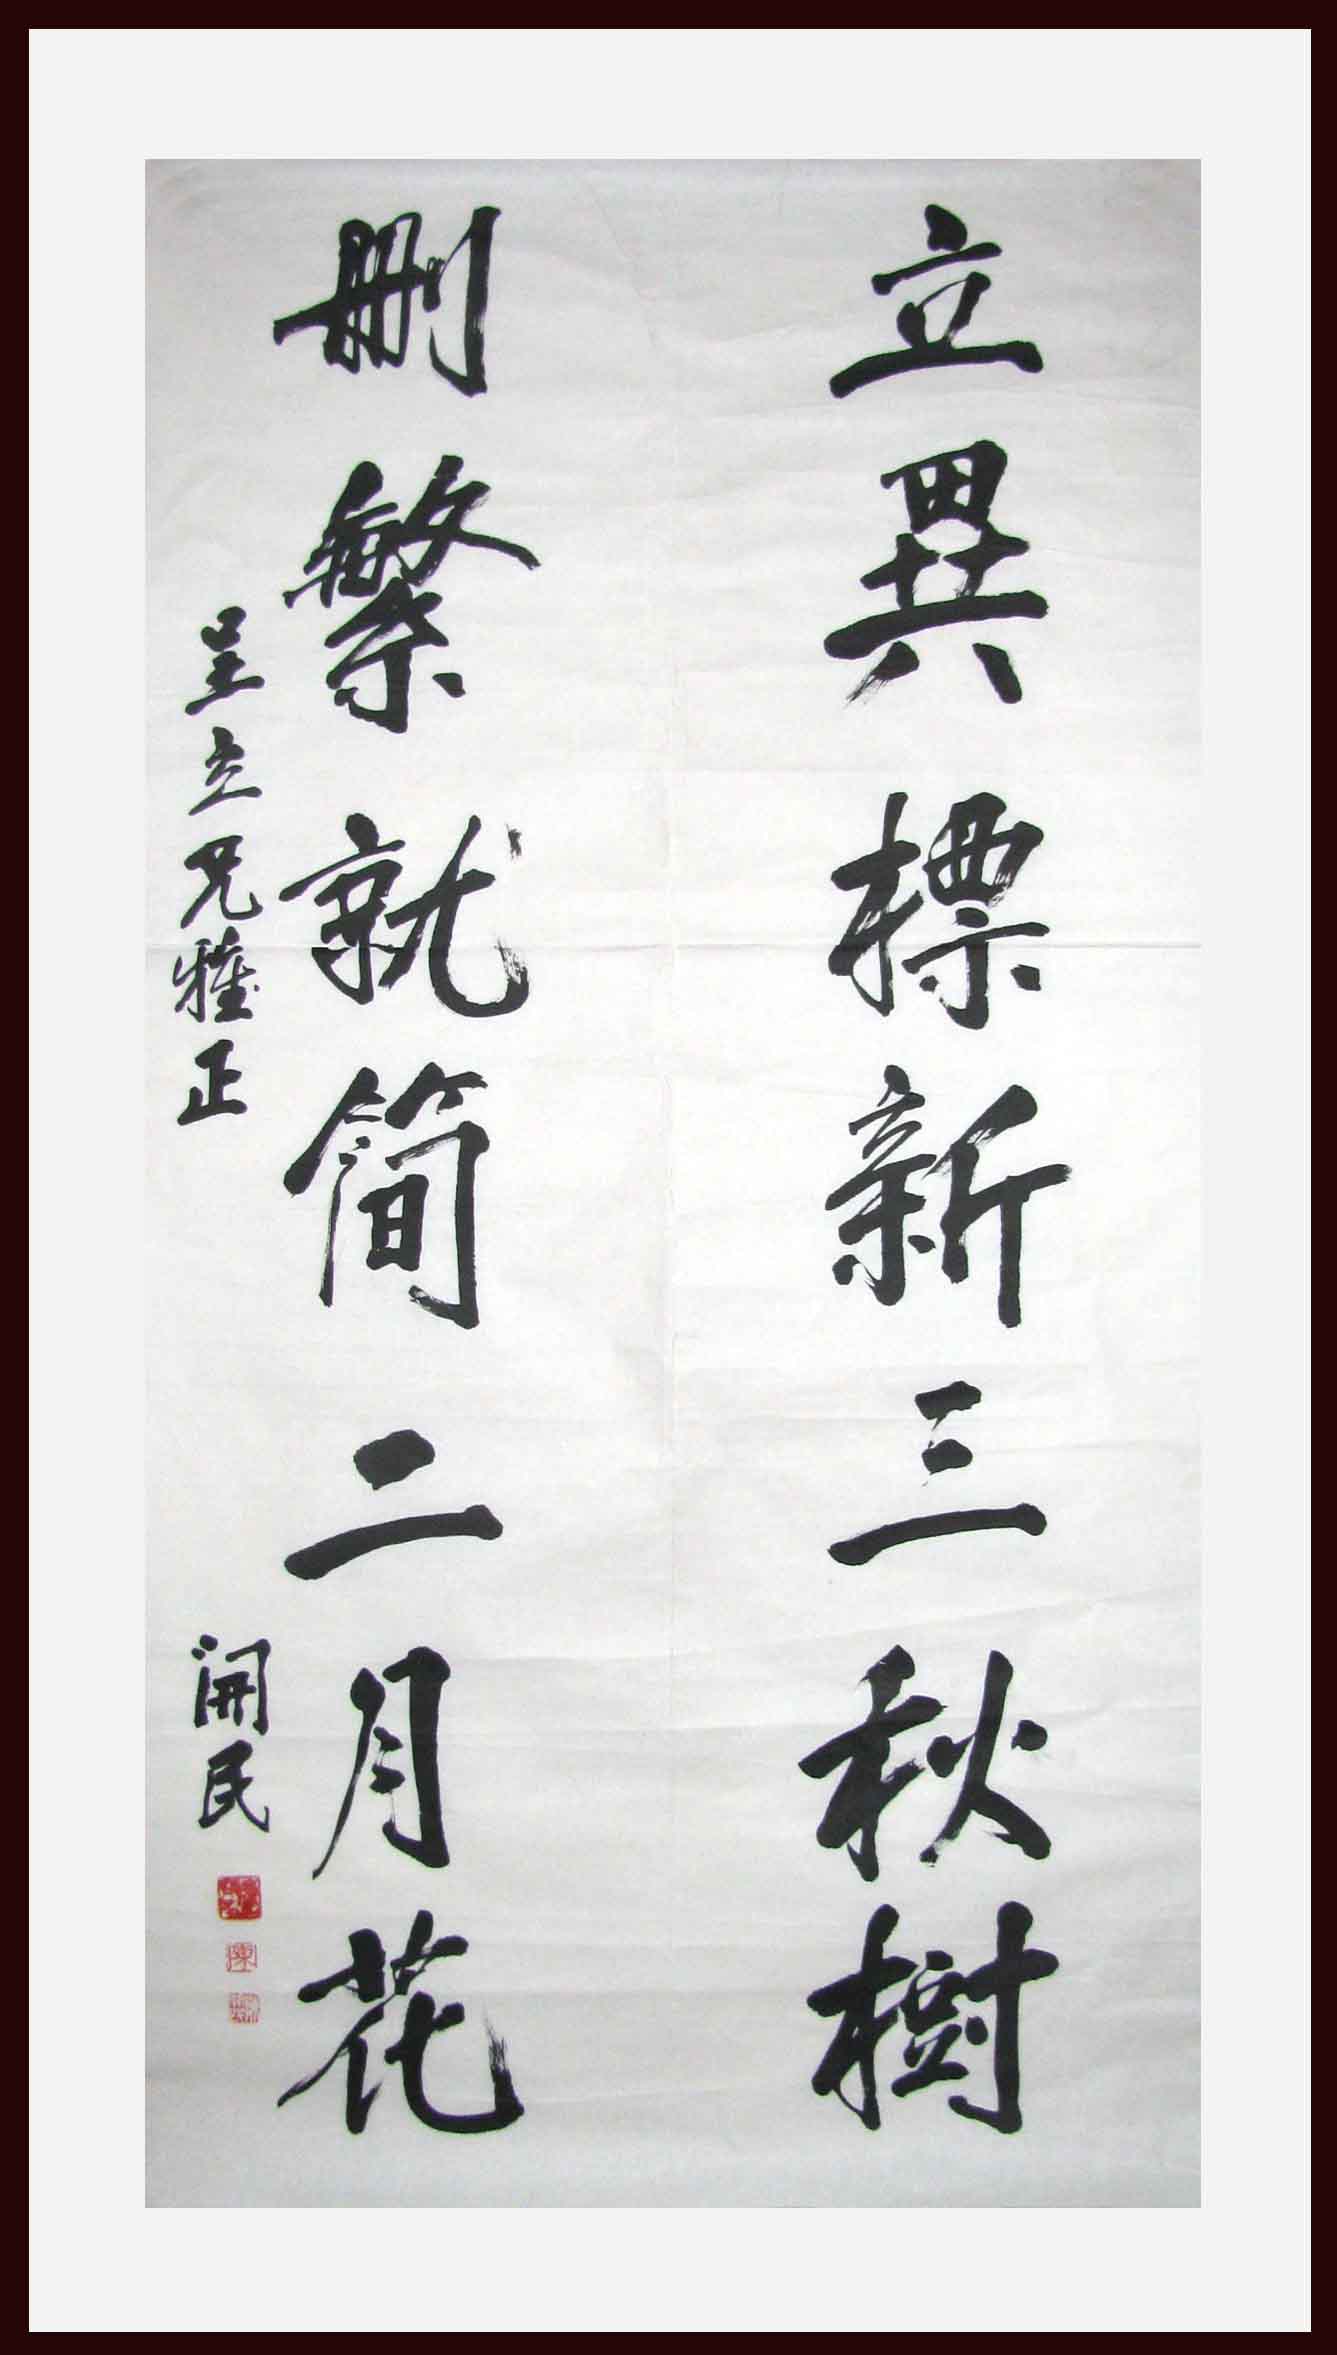 立異標新三秋樹
刪繁就简二月花
呈立兄雅正
開民